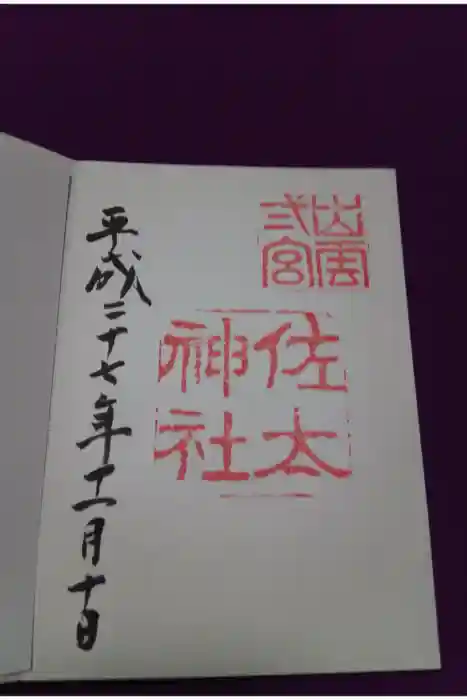 出雲
弍宮
佐太
神社
平成二十七年十一月十日